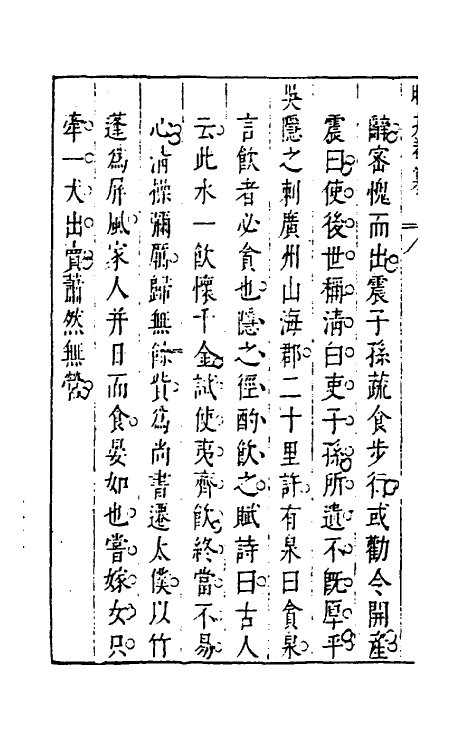 辭密愧而出震子孫蔬食步行或勸令開產
震曰使後世稱清白吏子孫所遺不旣厚乎
吳隱之刺廣州山海郡二十里許有泉曰貪泉
言飲者必貪也隱之徑酌飲之賦詩曰古人
云此水一飲懷千金試使夷齊飲終當不易
心淸操彌厲歸無餘貲爲尚書遷太僕以竹
蓬爲屏風家人并日而食晏如也嘗嫁女只
牽一犬出賣蕭然無營